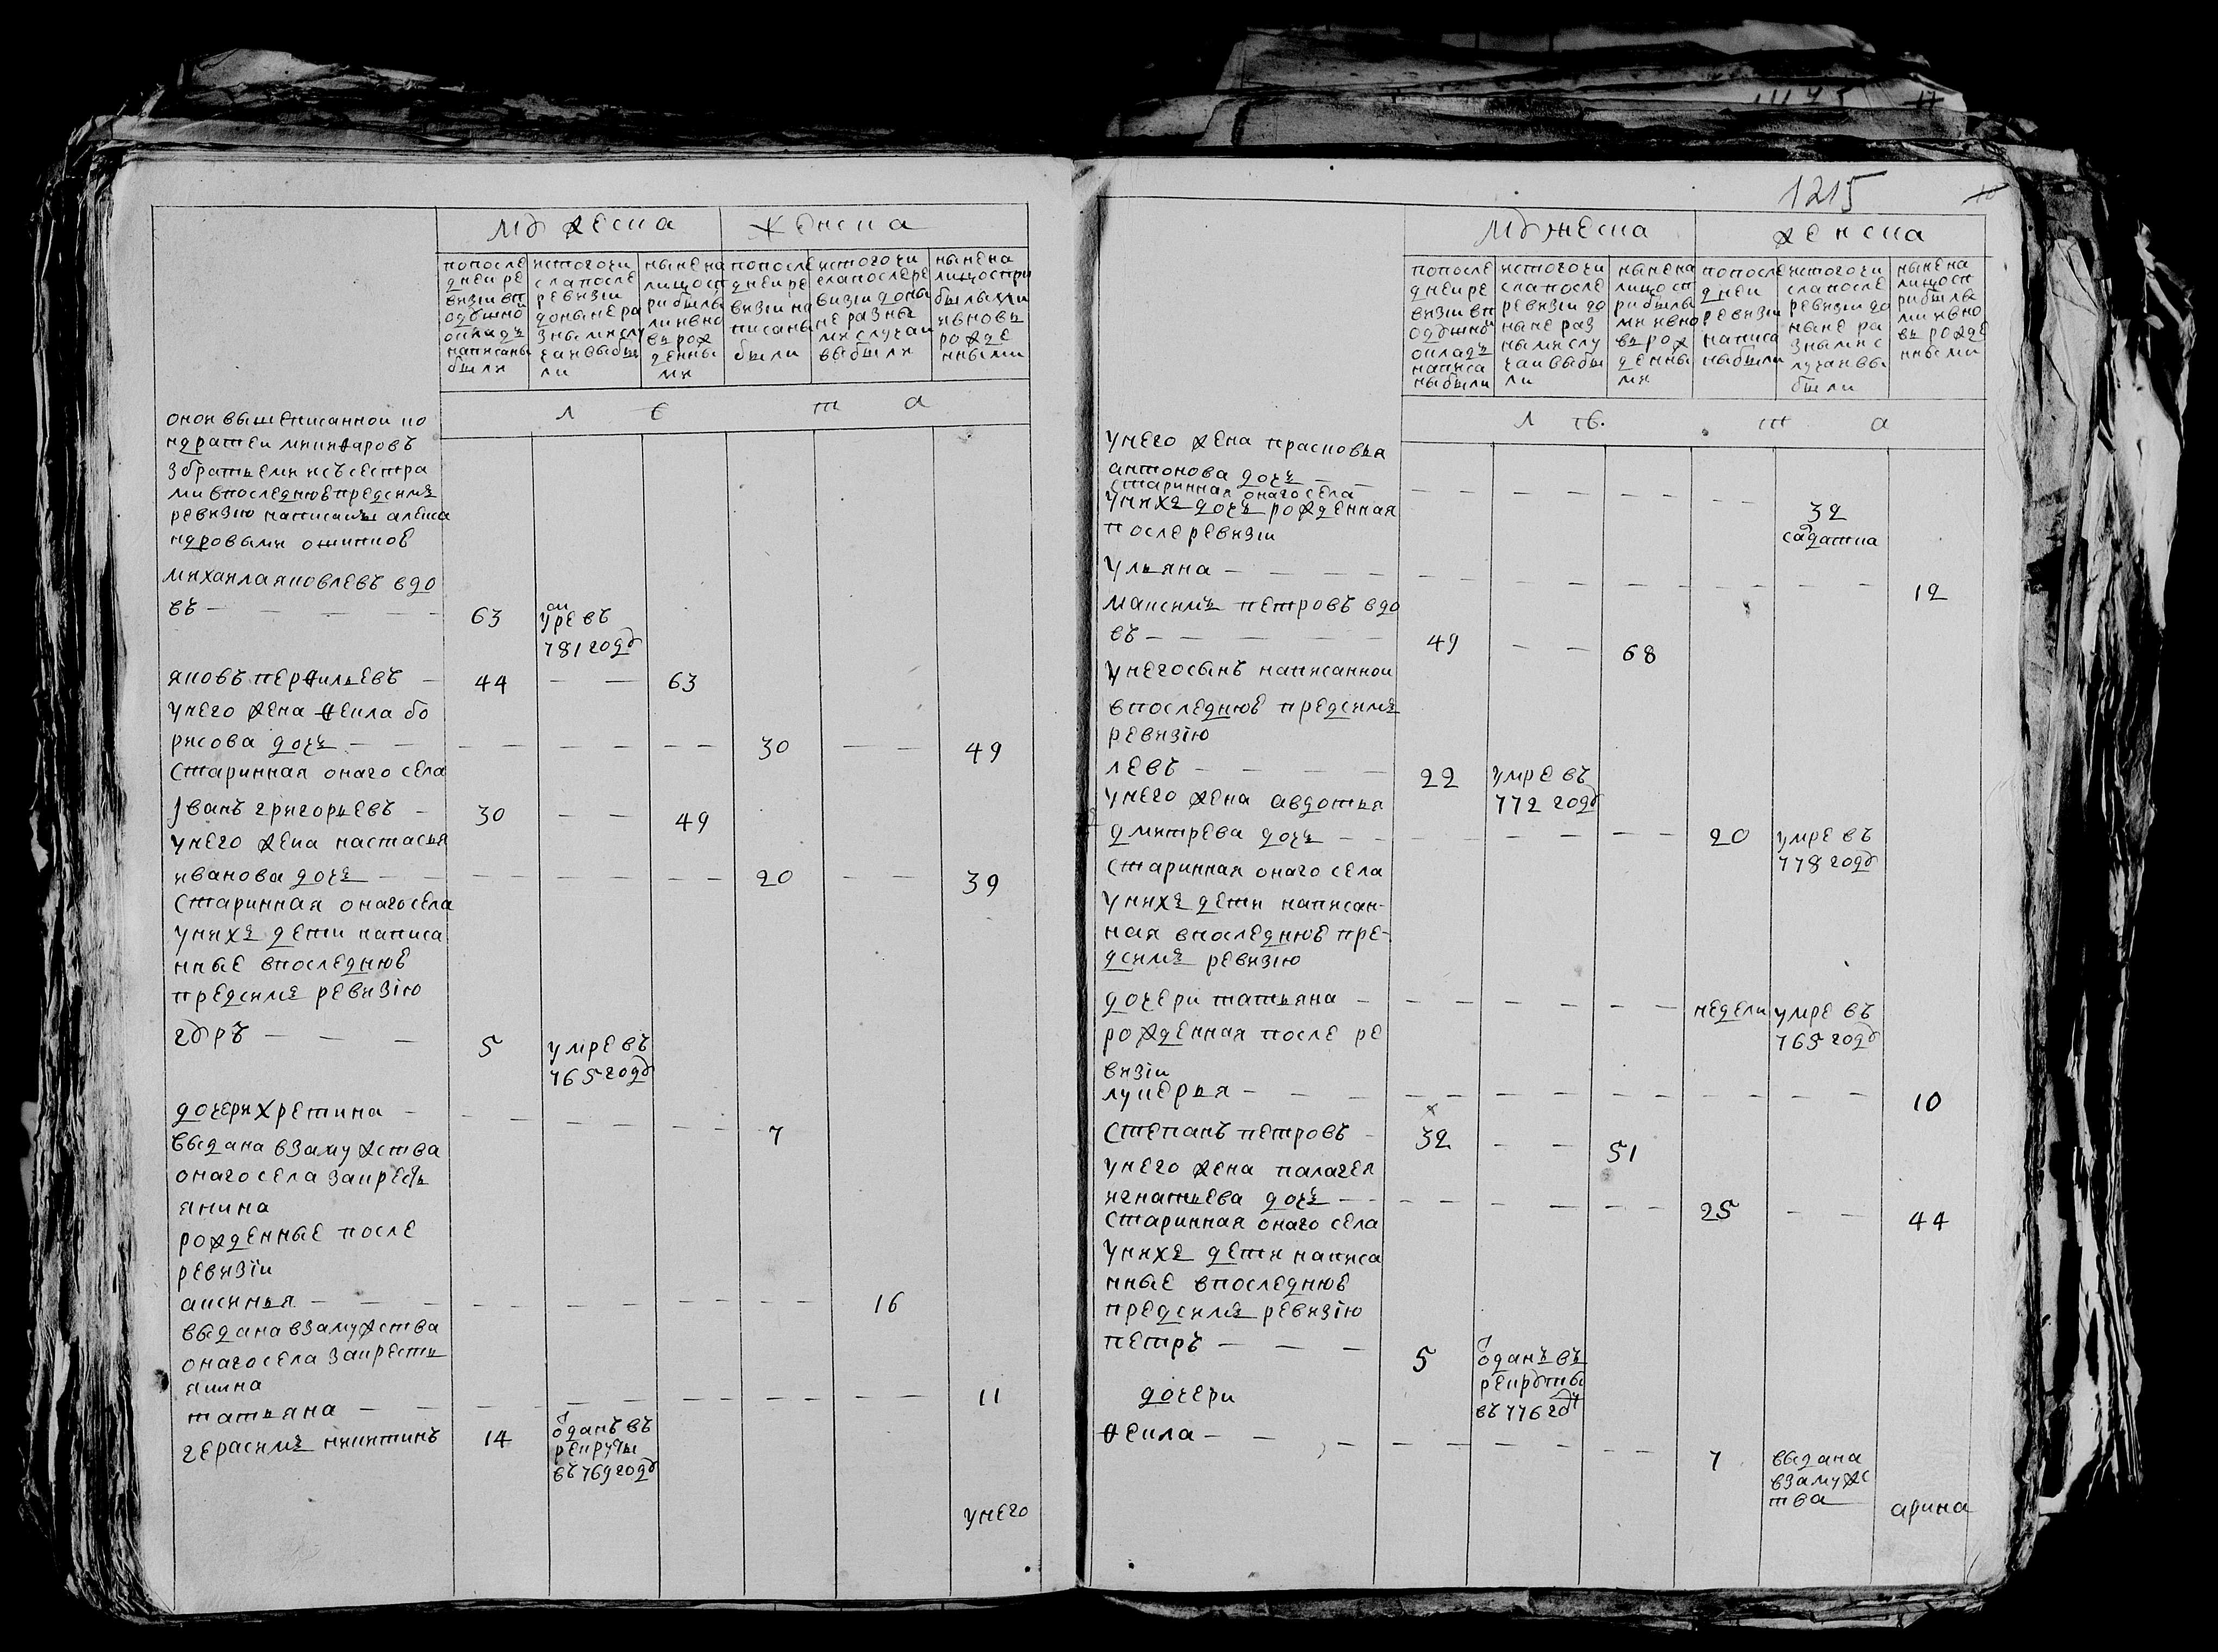 мужеска женска
попосле
дней ре
визiи вп
одушно
окладъ
написаны
были
истогочи
слапосле
ревизiи
доныне ра
знымислу
чаи выбы
ли
ныне на
лицосп
рибылы
ми вно
въ рож
денны
ми
попосле
дней ре
визiи на
писаны
были
истогочи
слапосле ре
визiи доны
не разны
ми случаи
выбыли
ныне на
лицо спри
былыми
и вновь
рожде
нными
л е т а
оной вышеписанной ко
ндратей никифаровъ
збратьеми исъ сестра
ми впоследнюю предсимъ
ревизiю написаны алекса
ндровыми
михаила яковлевъ вдо
въ — — — — 63 умре въ
781 году
яковъ перфильевъ — 44 — — 63
унего жена фекла бо
рисова дочь — — — — — — — 30 — — 49
старинная онаго села
Iванъ григорьевъ — 30 — — 49
унего жена настасья
иванова дочь — — — — — — — 20 — — 39
старинная онаго села
унихъ дети написа
нные впоследнюю
предсимъ ревизiю
гуръ — — — 5 умре въ
765 году
дочери хретина — — — — — — 7
выдана взамужства
онаго села закресть
янина
рожденные после
ревизiи
аксинья — — — — — — — — — 16
выдана взамужства
онаго села закресть
янина
татьяна — — — — — — — — — — 11
герасимъ никитинъ 14 отданъ въ
рекруты
въ 769 году
унего
1215
мужеска женска
попосле
дней ре
визiи вп
одушной
окладъ
написа
ны были
истогочи
сла после
ревизiи до
ныне раз
нымислу
чаи выбы
ли
ныне на
лицо сп
рибылы
ми вно
въ рож
денны
ми
попосле
дней
ревизiи
написа
ны были
истогочи
сла после
ревизiи до
ныне ра
знымис
лучаи вы
были
ныне на
лицосп
рибылы
ми вно
въ рожде
нными
л ѣ. т а
унего жена прасковья
антонова дочь — —
старинная онаго села — — — — — — — 32
салдатка
унихъ дочь рожденная
после ревизiи
ульяна — — — — — — — — — — — — 12
максимъ петровъ вдо
въ — — — — — 49 — — 68
унего сынъ написанной
впоследнюю предсимъ
ревизiю
левъ — — — — 22 умре въ
772 году
унего жена авдотья
дмитрева дочь — — — — — — — 20 умре въ
778 году
старинная онаго села
унихъ дети написан-
ная впоследнюю пре-
дсимъ ревизiю
дочери татьяна — — — — — — — недели умре въ
765 году
рожденная после ре
визiи
лукерья — — — — — — — — — — — — 10
степанъ петровъ — 32 — — 51
унего жена палагея
игнатьева дочь — — — — — — — — 25 — — 44
старинная онаго села
унихъ дети написа
нные впоследнюю
предсимъ ревизiю
петръ — — — 5 отданъ въ
рекруты
въ 776 году
дочери
фекла — — — — — — — — 7 выдана
взамужс
тва
арина